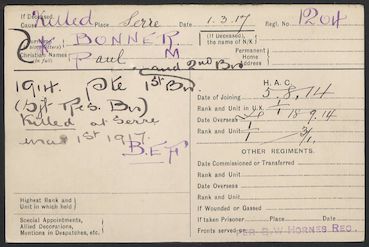 If Deceased. Killed Place Serre Date 1.3.17 Regl. No. 1204
BONNER (If Deceased), the name of N/K
Christian Names (in full) Paul M Permanent Home Address
and 2nd Bn
1914. Pte 1st Bn
H. A. C.
Date of Joining 5.8.14
(1st Res. Bn) Rank and Unit in U.K. 1/1
Killed at Serre Date Overseas 18 9.14
Mar 1st 1917. Rank and Unit 1/1
B.E.F
OTHER REGIMENTS.
Date Commissioned or Transferred
Rank and Unit
Date Overseas
Highest Rank and Unit in which held Rank and Unit
If Wounded or Gassed
Special Appointments, If taken Prisoner Place Date
Allied Decorations, Mentions in Despatches, etc. Fronts served on PER B.W HORNES REG.